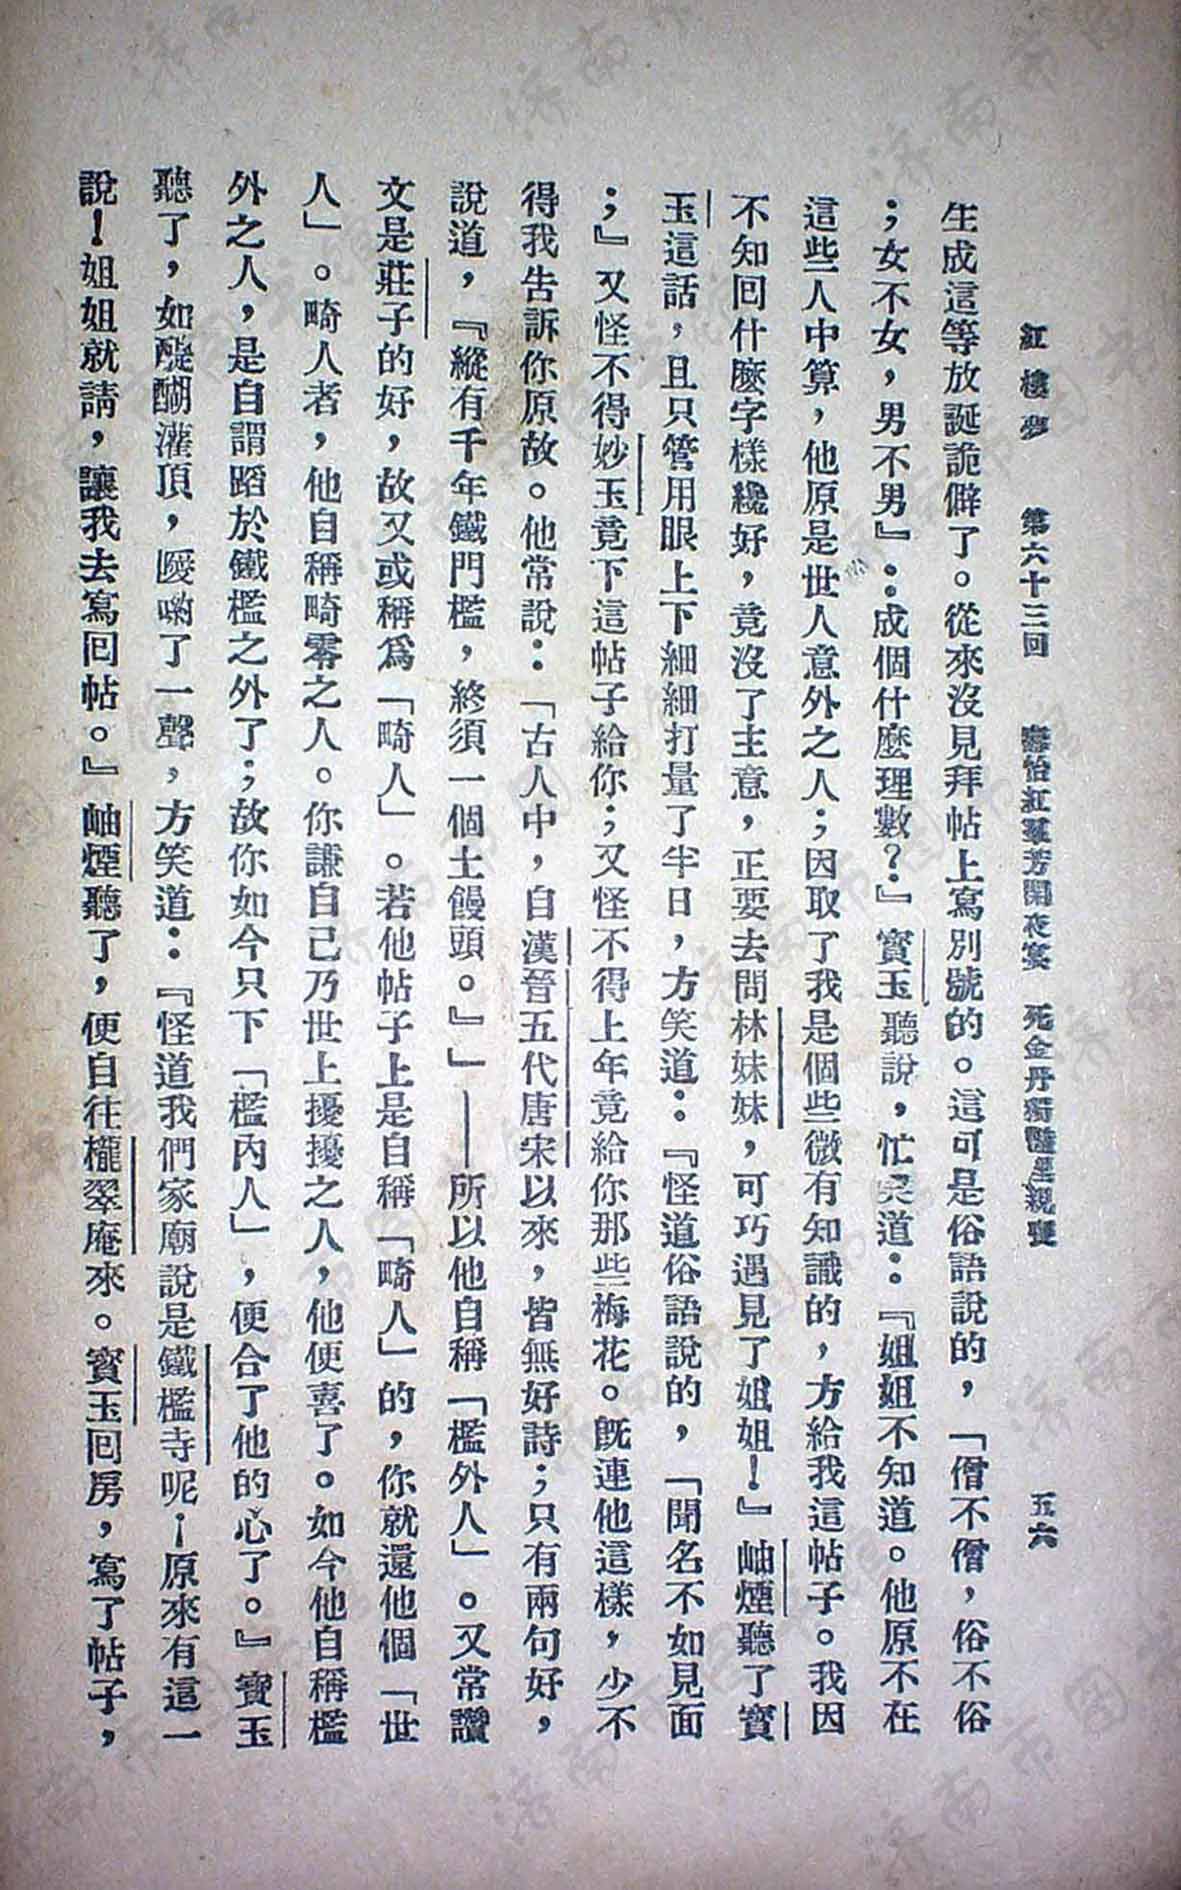 紅樓夢　第六十三回　壽怡紅羣芳開夜宴　死金丹獨豔理親喪　五六
生成這等放誕詭僻了。從來沒見拜帖上寫別號的。這可是俗語說的，「僧不僧，俗不俗
；女不女，男不男』：成個什麼理數？』寶玉聽說，忙笑道：『姐姐不知道。他原不在
這些人中算，他原是世人意外之人；因取了我是個些微有知識的，方給我這帖子。我因
不知回什麼字樣纔好，竟沒了主意，正要去問林妹妹，可巧遇見了姐姐！』岫煙聽了寶
玉這話，且只管用眼上下細細打量了半日，方笑道：『怪道俗語說的，「聞名不如見面
；』又怪不得妙玉竟下這帖子給你；又怪不得上年竟給你那些梅花。既連他這樣，少不
得我告訴你原故。他常說：「古人中，自漢晉五代唐宋以來，皆無好詩；只有兩句好，
說道，『縱有千年鐵門檻，終須一個土饅頭。』」——所以他自稱「檻外人」。又常讚
文是莊子的好，故又或稱爲「畸人」。若他帖子上是自稱「畸人」的，你就還他個「世
人」。畸人者，他自稱畸零之人。你謙自己乃世上擾擾之人，他便喜了。如今他自稱檻
外之人，是自謂蹈於鐵檻之外了；故你如今只下「檻內人」，便合了他的心了。』寶玉
聽了，如醍醐灌頂，噯喲了一聲，方笑道：『怪道我們家廟說是鐵檻寺呢！原來有這一
說！姐姐就請，讓我去寫回帖。』岫煙聽了，便自往櫳翠庵來。寶玉回房，寫了帖子，